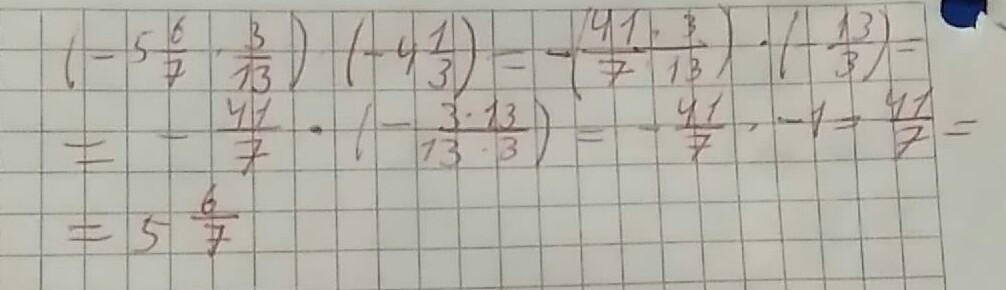 (-5 6/7 · 3/13) · (-4 1/3) = -(41/7 · 3/13) · (-13/3) =
= -41/7 · (-3·13/13·3) = -41/7 · -1 = 41/7 =
= 5 6/7